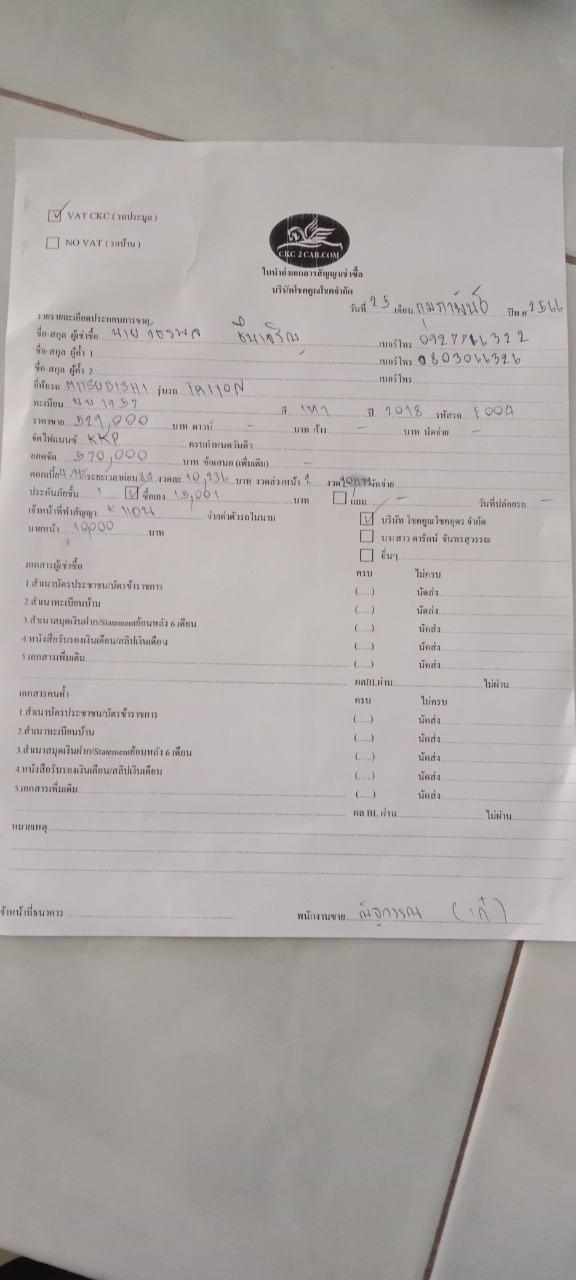 VAT CKC ( รถประมูล )
NO VAT ( รถบ้าน )
CKC 2 CAR.COM
ใบนำส่งเอกสารสัญญาเช่าซื้อ
บริษัทโชคคูณโชคจำกัด
วันที่ 25 เดือน กุมภาพันธ์ ปีพ.ศ 2566
รายรายละเอียดประกอบการขาย
ชื่อ-สกุล ผู้เช่าซื้อ นาย เบอร์โทร
ชื่อ-สกุล ผู้ค้ำ 1 เบอร์โทร 0803066326
ชื่อ-สกุล ผู้ค้ำ 2 เบอร์โทร
ยี่ห้อรถ MITSUBISHI รุ่นรถ TRITON
ทะเบียน 1957 สี เทา ปี 2018 รหัสรถ F004
ราคาขาย 529,000 บาท ดาวน์ - บาท ค้าง - บาท นัดจ่าย -
จัดไฟแนนซ์ KKP ครบกำหนดวันดิว
ยอดจัด 570,000 บาท ข้อเสนอ (เพิ่มเติม) -
ดอกเบี้ย ระยะเวลาผ่อน งวดละ 10,236 บาท งวดล่วงหน้า 1 งวด นัดจ่าย
ประกันภัยชั้น 1 ซื้อเอง บาท แถม - วันที่ปล่อยรถ -
เจ้าหน้าที่ทำสัญญา จ่ายค่าตัวรถในนาม บริษัท โชคคูณโชคอุดร จำกัด
นายหน้า 10,000 บาท นางสาว ดารัตน์ จันทรสุวรรณ
อื่นๆ
เอกสารผู้เช่าซื้อ ครบ ไม่ครบ
1.สำเนาบัตรประชาชน/บัตรข้าราชการ (.....) นัดส่ง
2.สำเนาทะเบียนบ้าน (.....) นัดส่ง
3.สำเนาสมุดเงินฝาก/Statementย้อนหลัง 6 เดือน (.....) นัดส่ง
4.หนังสือรับรองเงินเดือน/สลิปเงินเดือน (.....) นัดส่ง
5.เอกสารเพิ่มเติม (.....) นัดส่ง
ผลBLผ่าน ไม่ผ่าน
เอกสารคนค้ำ ครบ ไม่ครบ
1.สำเนาบัตรประชาชน/บัตรข้าราชการ (.....) นัดส่ง
2.สำเนาทะเบียนบ้าน (.....) นัดส่ง
3.สำเนาสมุดเงินฝาก/Statementย้อนหลัง 6 เดือน (.....) นัดส่ง
4.หนังสือรับรองเงินเดือน/สลิปเงินเดือน (.....) นัดส่ง
5.เอกสารเพิ่มเติม (.....) นัดส่ง
ผล BL ผ่าน ไม่ผ่าน
หมายเหตุ
จ้าหน้าที่ธนาคาร พนักงานขาย